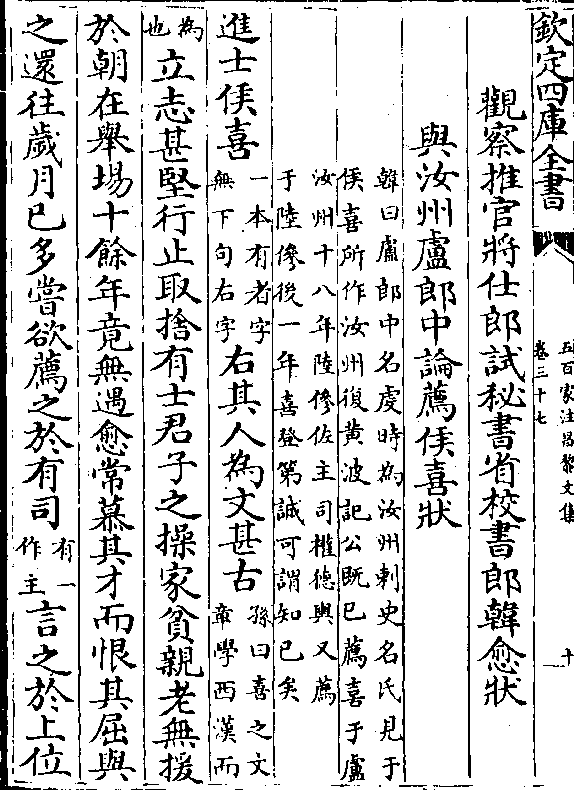 欽定四庫全書
五百家注昌黎文集
卷三十七
十
觀察推官將仕郎試秘書省校書郎韓愈狀
與汝州盧郎中論薦侯喜狀
韓曰盧郎中名虔時為汝州刺史名氏見于
侯喜所作汝州復黄陂記公既已薦喜于盧
汝州十八年陸傪佐主司權德輿又薦
于陸傪後一年喜登第誠可謂知已矣
進士侯喜
一本有者字
無下句右字
右其人為文甚古
孫曰喜之文
章學西漢而
為
也
立志甚堅行止取捨有士君子之操家貧親老無援
於朝在舉場十餘年竟無遇愈常慕其才而恨其屈與
之還往歲月已多嘗欲薦之於有司
有一
作主
言之於上位